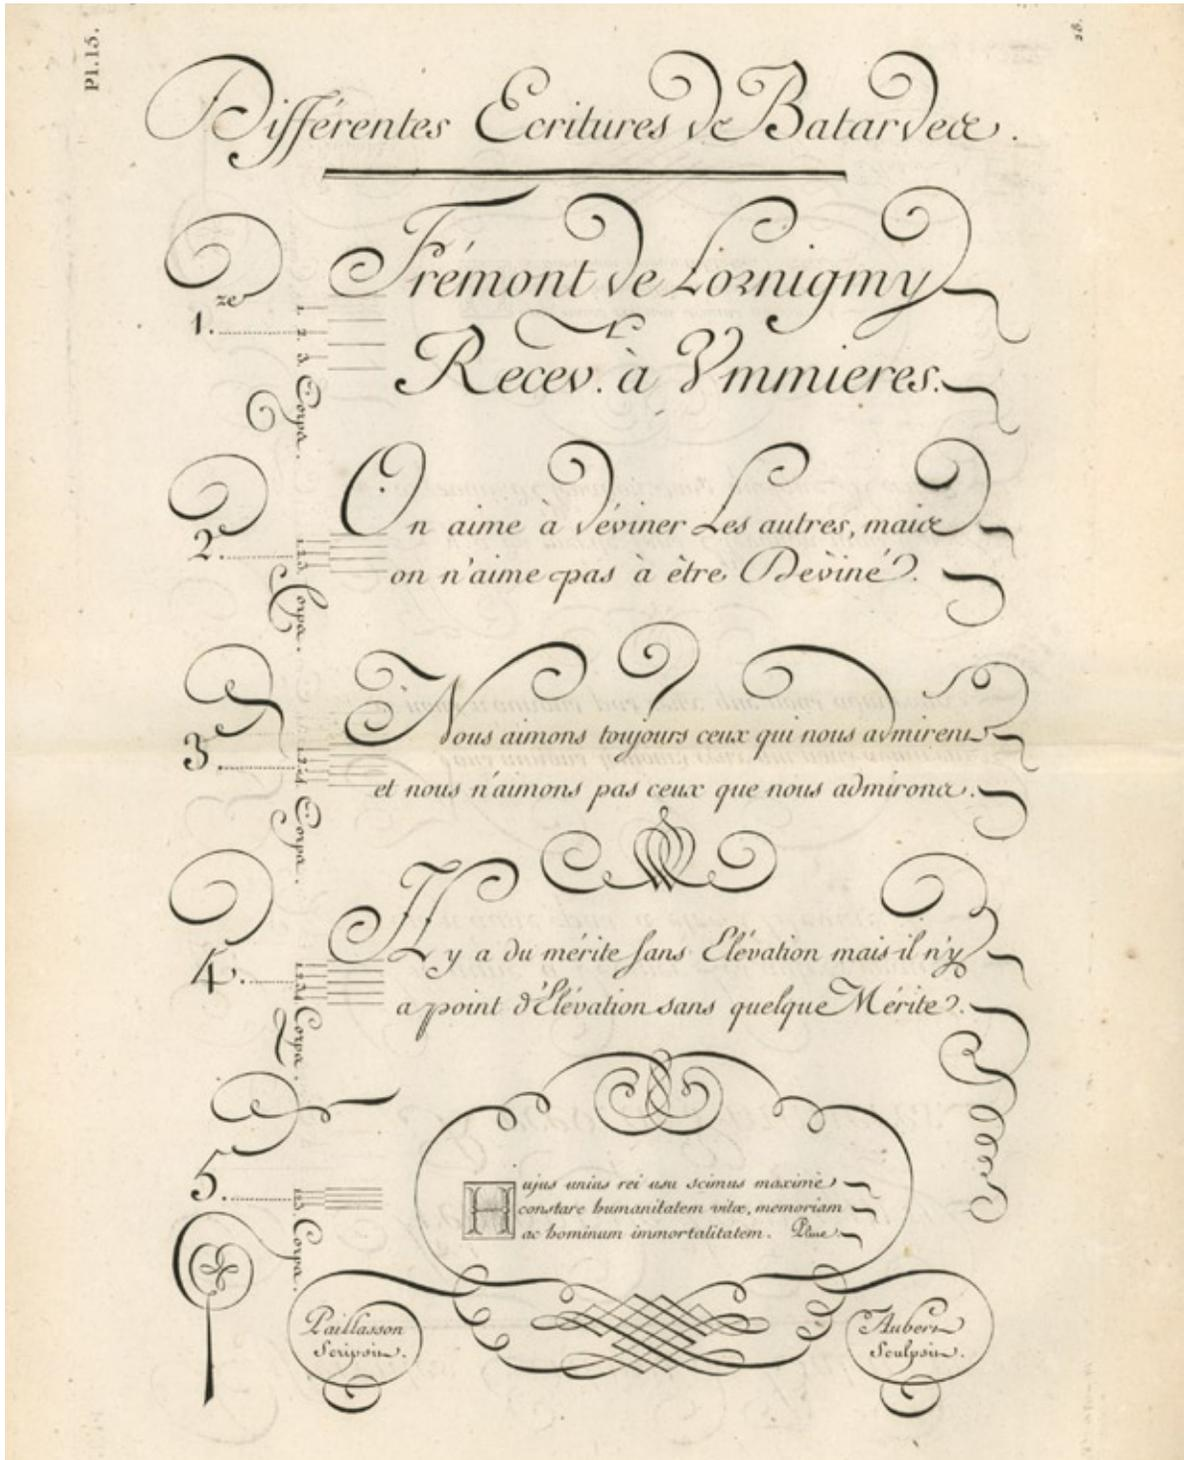 Pl. 15.
28.
Différentes Ecritures de Batardes.
Frémont de Lornigmy
Recev.r à Ymmieres.
1.re
1. 2. 3. Corps.
On aime à déviner Les autres, mais
on n'aime pas à ètre Deviné.
2.
1. 2. 3. Corps.
Nous aimons toujours ceux qui nous admirent
et nous n'aimons pas ceux que nous admirons.
3.
Corps.
Il y a du mérite sans Elévation mais il n'y
a point d'Elévation sans quelque Mérite.
4.
Corps.
Hujus unius rei usu scimus maximè
constare humanitatem vitæ, memoriam
ac hominum immortalitatem. Pline
5.
Corps.
Paillasson
Scripsit.
Aubert
Sculpsit.